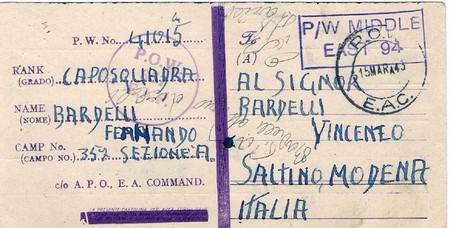 P. W. No. 41015
RANK
(GRADO) CAPOSQUADRA
NAME
(NOME) BARDELLI
FERNANDO
CAMP No.
(CAMPO NO.) 359 SEZIONE A.
c/o A. P. O., E. A. COMMAND.
P.O.W.
To
(A)
P/W MIDDLE
EAST 94
15 MAR 43
E.A.C.
AL SIGNOR
BARDELLI
VINCENZO
SALTINO, MODENA
ITALIA